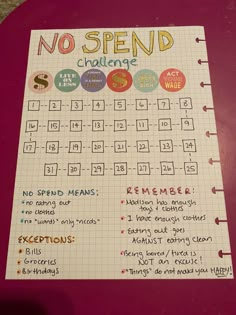 NO SPEND
challenge
$ LIVE ON LESS $ ACT YOUR WAGE
1 2 3 4 5 6 7 8
16 15 14 13 12 11 10 9
17 18 19 20 21 22 23 24
31 30 29 28 27 26 25
NO SPEND MEANS:
* no eating out
* no clothes
* no "wants" only "needs"
EXCEPTIONS:
* Bills
* Groceries
* Birthdays
REMEMBER:
* Madison has enough
toys & clothes
* I have enough clothes
* Eating out goes
AGAINST eating clean
* Being bored/tired is
NOT an excuse!
* "Things" do not make you HAPPY!